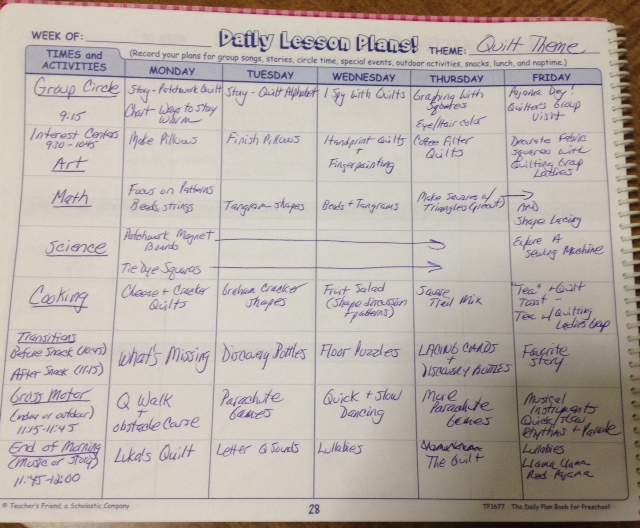 WEEK OF:
Daily Lesson Plans!
THEME: Quilt Theme
(Record your plans for group songs, stories, circle time, special events, outdoor activities, snacks, lunch, and naptime.)
TIMES and
ACTIVITIES
MONDAY
TUESDAY
WEDNESDAY
THURSDAY
FRIDAY
Group Circle
9:15
Story - Patchwork Quilt
Chart Ways to stay
warm
Story - Quilt Alphabet
I Spy with Quilts
Graphing with
Squares
Eye/Hair color
Pajama Day!
Quilters Group
Visit
Interest Centers
9:30 - 10:45
Art
Make Pillows
Finish Pillows
Handprint Quilts
+
Fingerpainting
Coffee Filter
Quilts
Decorate Fabric
Squares with
Quilting Group
Ladies
Math
Focus on Patterns
Beads, strings
Tangram shapes
Beads + Tangrams
Make Squares w/
Triangles
AND
Shape Lacing
Science
Patchwork Magnet
Boards
Tie Dye Squares
Explore A
Sewing Machine
Cooking
Cheese + Cracker
Quilts
Graham Cracker
Shapes
Fruit Salad
(Shape discussion
+ patterns)
Square
Trail Mix
"Tea" + Quilt
Toast -
Tea w/ Quilting
Ladies Group
Transitions
Before Snack (10:45)
After Snack (11:15)
What's Missing
Discovery Bottles
Floor Puzzles
LACING CARDS
+
DISCOVERY BOTTLES
Favorite
Story
Gross Motor
(indoor or outdoor)
11:15-11:45
Q Walk
+
obstacle course
Parachute
Games
Quick + Slow
Dancing
More
Parachute
Games
Musical
Instruments
Quick/Slow
Rhythms + Parade
End of Morning
(Music or Story)
11:45-12:00
Luka's Quilt
Letter Q Sounds
Lullabies
The Quilt
Lullabies
Llama Llama
Red Pajama
© Teacher's Friend, a Scholastic Company
28
TF1677 The Daily Plan Book for Preschool